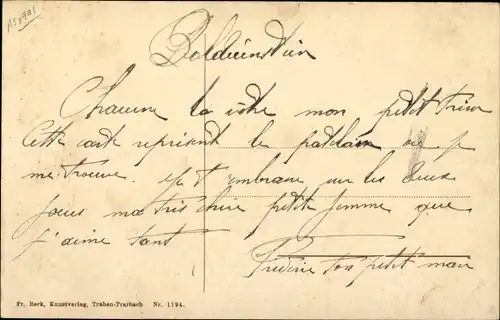 A51491
Boldienstein
Chacune la vôtre mon petit trésor
Cette carte représent le patelain où je
me trouve. je t'embrasse sur les deux
joues ma tris chère petite femme que
j'aime tant
ton petit mari
Fr. Beck, Kunstverlag, Traben-Trarbach Nr. 1194.